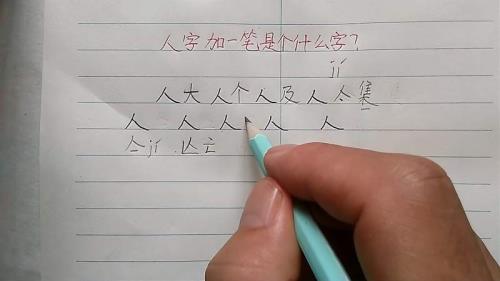 人字加一笔是个什么字?
jí
人大人个人及人亽集
人 人 人 人 人
亼jí 亾亡